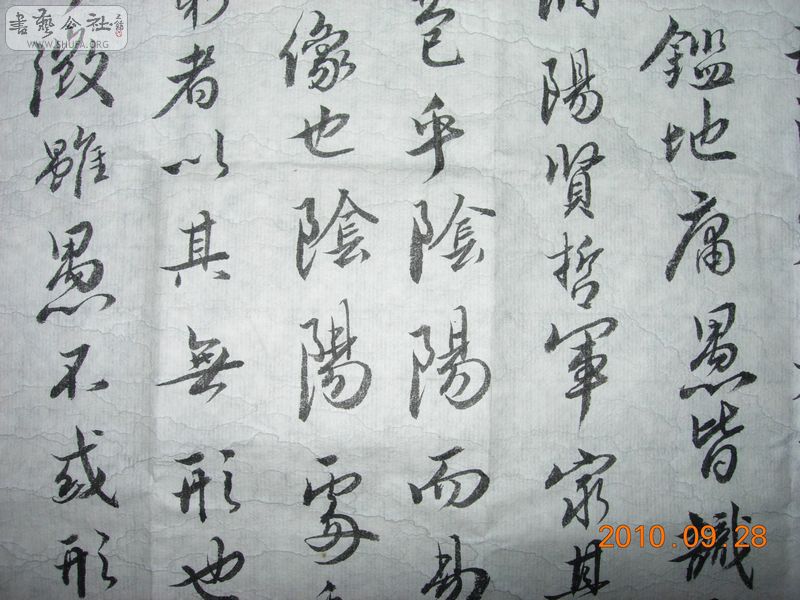 鑑地庸愚皆識
陽賢哲罕窮其
苞乎陰陽而易
像也陰陽處
者以其無形也
徵雖愚不惑形
書藝公社
WWW.SHUFA.ORG
2010.09.28